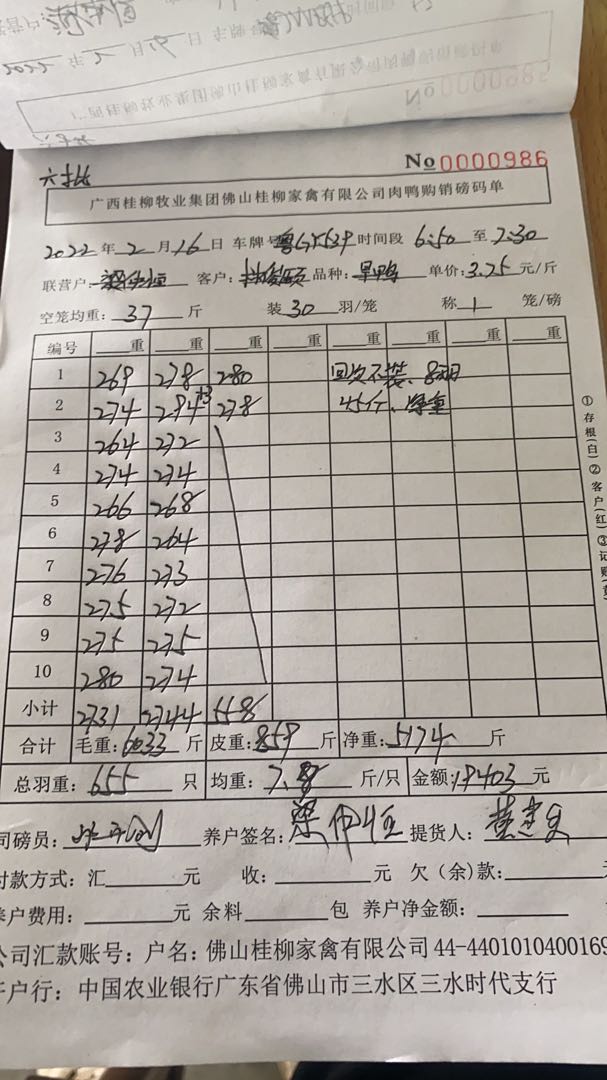 六批
No 0000986
广西桂柳牧业集团佛山桂柳家禽有限公司肉鸭购销磅码单
2022年 2 月 16 日 车牌号 时间段 6:50 至 7:30
联营户: 客户: 品种: 单价: 3.75 元/斤
空笼均重: 37 斤 装 30 羽/笼 称 1 笼/磅
编号 重 重 重 重 重 重 重 重
1 269 278 280 回欠不装、
2 274 294 +3 278 45斤、净重
3 264 272
4 274 274
5 266 268
6 278 264
7 276 273
8 275 272
9 275 275
10 280 274
小计 2731 2744 558
合计 毛重: 6033 斤 皮重: 859 斤 净重: 5174 斤
总羽重: 655 只 均重: 7.8 斤/只 金额: 19403 元
司磅员: 养户签名: 梁伊恒 提货人:
付款方式: 汇 元 收: 元 欠(余)款:
养户费用: 元 余料 包 养户净金额:
公司汇款账号: 户名: 佛山桂柳家禽有限公司 44-4401010400169
开户行: 中国农业银行广东省佛山市三水区三水时代支行
①存根(白)②客户(红)③记账